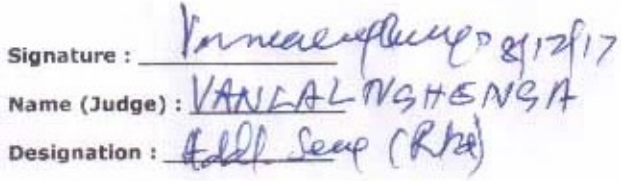 Signature : 8/12/17
Name (Judge) : VANLALNGHENGA
Designation : Addl. Secy (Rtd)